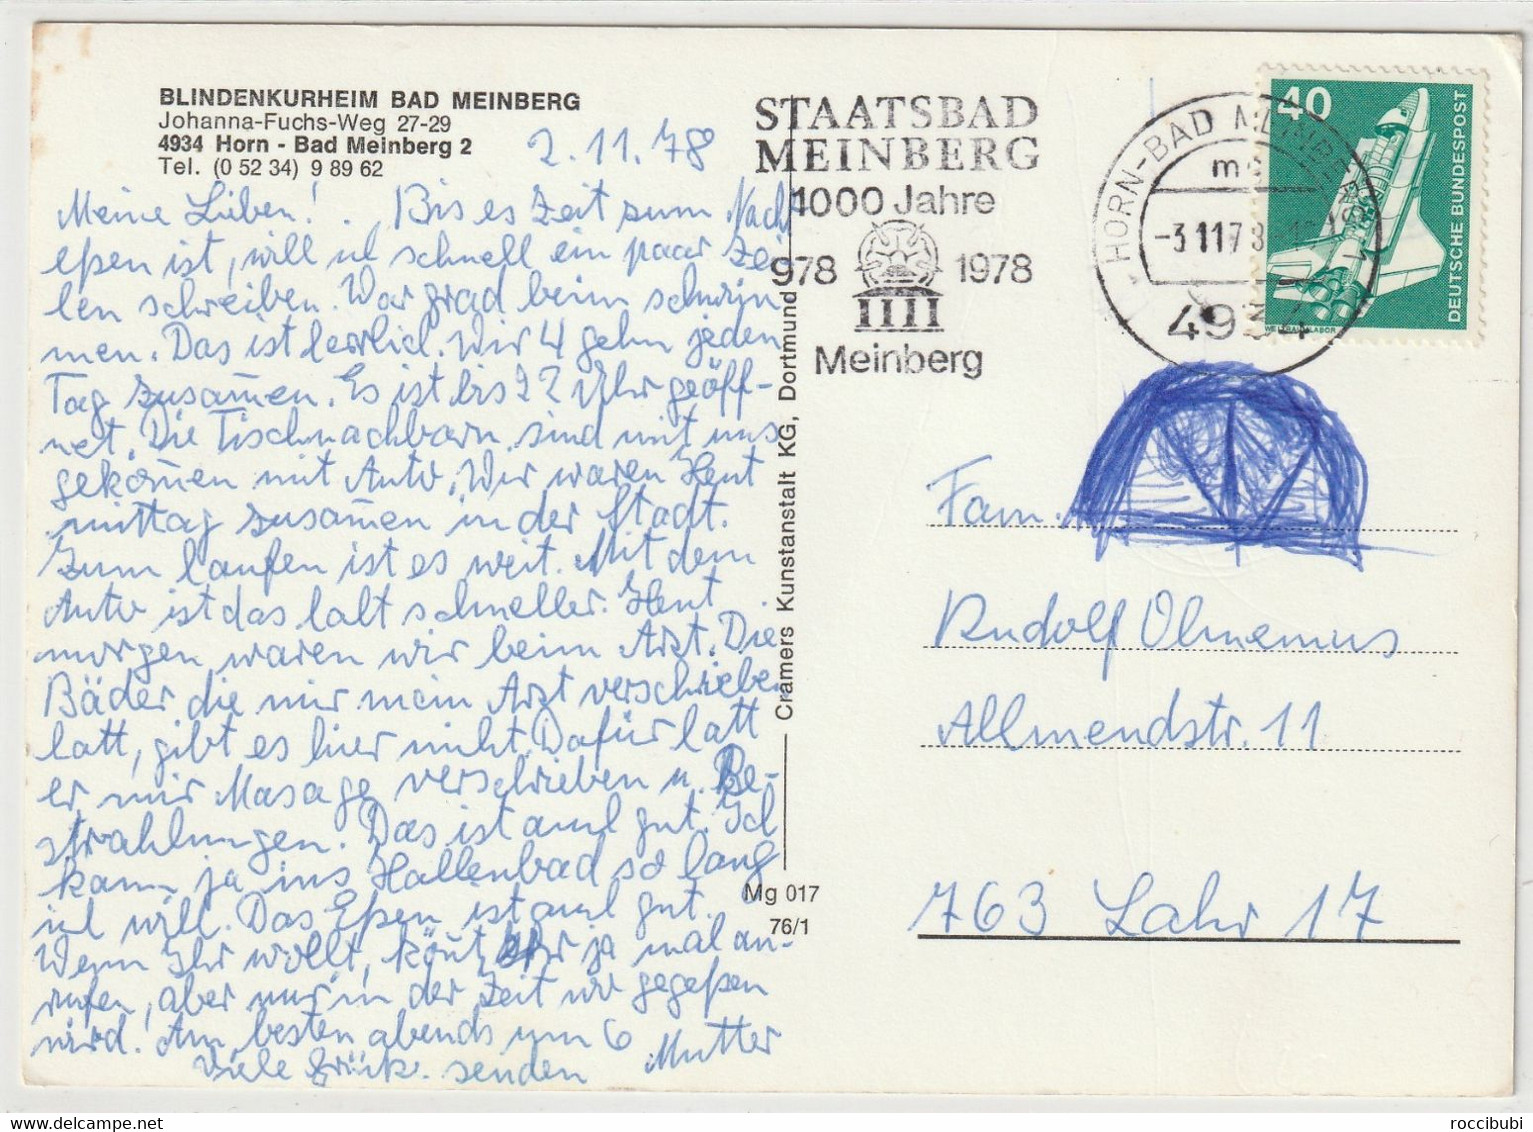 BLINDENKURHEIM BAD MEINBERG
Johanna-Fuchs-Weg 27-29
4934 Horn - Bad Meinberg 2
Tel. (0 52 34) 9 89 62
2.11.78
Meine Lieben! Bis es Zeit zum Nach
eßen ist, will ich schnell ein paar Zei-
len schreiben. War grad beim schwim
men. Das ist herrlich. Wir 4 gehn jeden
Tag zusam̄en. Es ist bis 22 Uhr geöff-
net. Die Tischnachbarn sind mit uns
gekom̄en mit Auto. Wir waren Heut
mittag zusam̄en in der Stadt.
Zum laufen ist es weit. Mit dem
Auto ist das halt schneller. Heut
morgen waren wir beim Arzt. Die
Bäder die mir mein Arzt verschrieben
hatt, gibt es hier nicht. Dafür hatt
er mir Masage verschrieben u. Be-
strahlungen. Das ist auch gut. Ich
kann ja ins Hallenbad so lang
ich will. Das Eßen ist auch gut.
Wenn Ihr wollt, kön̄t Ihr ja mal an-
rufen, aber nur in der Zeit wo gegeßen
wird. Am besten abends um 6
Viele Grüße senden Mutter
STAATSBAD
MEINBERG
1000 Jahre
978 1978
Meinberg
HORN-BAD MEINBERG 1
-3.11.78
4934
40
DEUTSCHE BUNDESPOST
WELTRAUMLABOR
Cramers Kunstanstalt KG, Dortmund
Mg 017
76/1
Fam.
Rudolf Ohnemus
Allmendstr. 11
763 Lahr 17
roccibubi